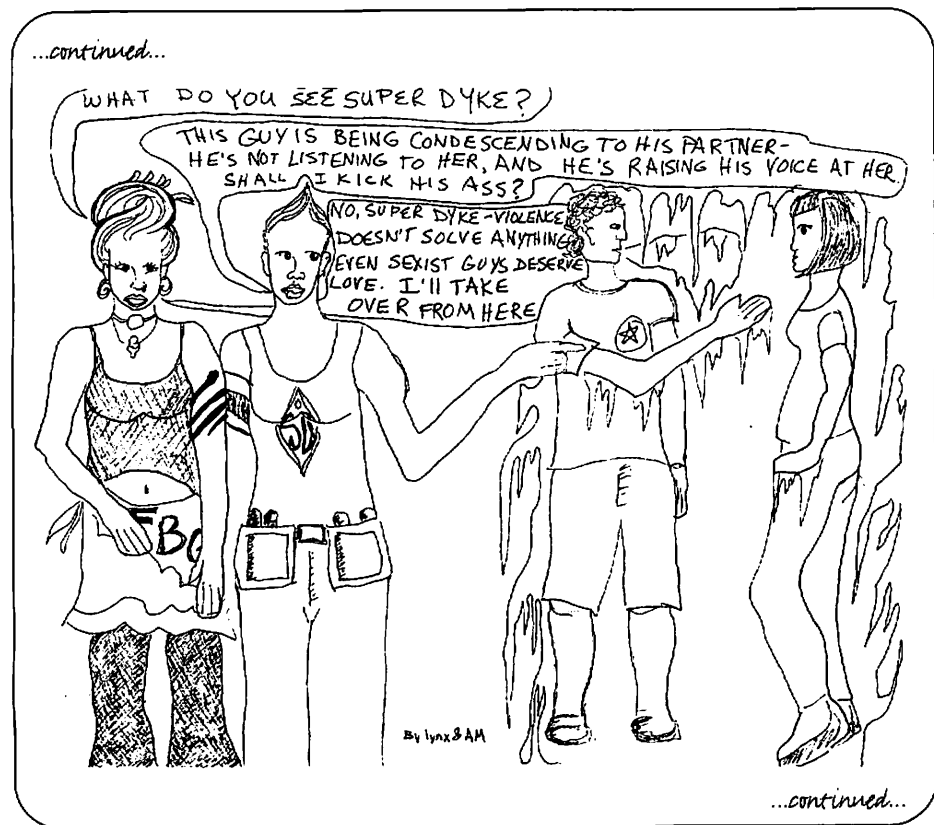 ...continued...
WHAT DO YOU SEE SUPER DYKE?
THIS GUY IS BEING CONDESCENDING TO HIS PARTNER-
HE'S NOT LISTENING TO HER, AND HE'S RAISING HIS VOICE AT HER
SHALL I KICK HIS ASS?
NO, SUPER DYKE-VIOLENCE
DOESN'T SOLVE ANYTHING
EVEN SEXIST GUYS DESERVE
LOVE. I'll TAKE
OVER FROM HERE
SD
FBG
By lynx & AM
...continued...